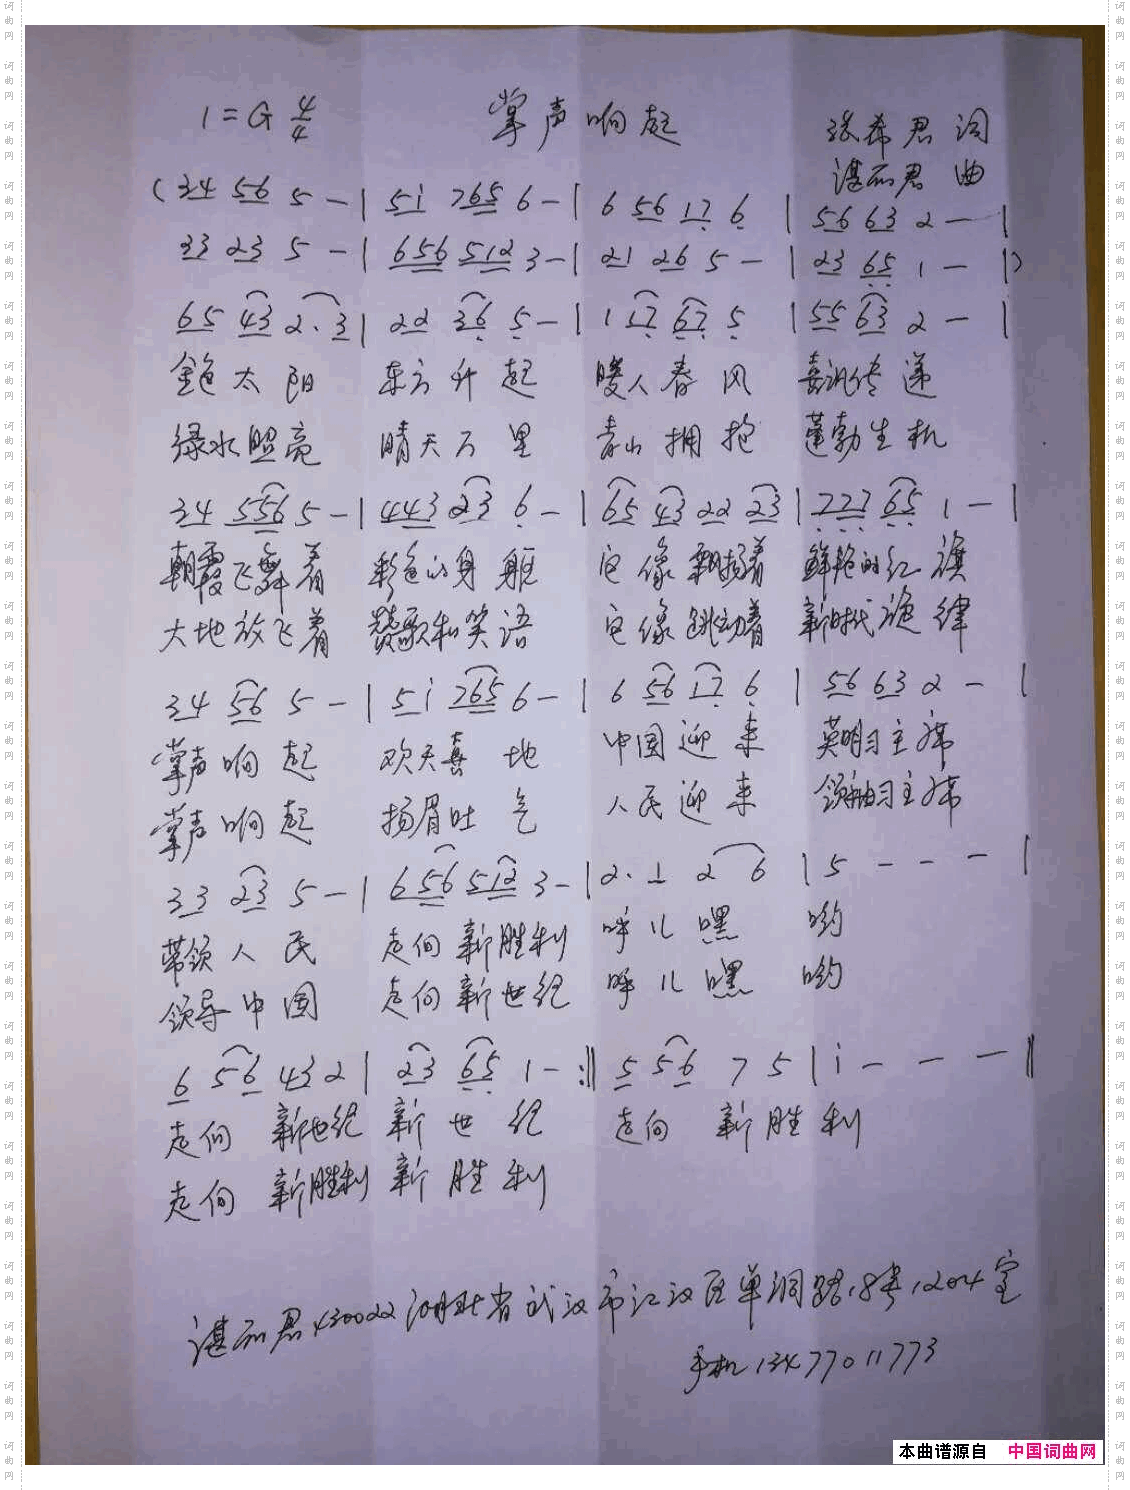 1=G 4/4 掌声响起 张希君 词
谌丽君 曲
(34 56 5 - | 5i 765 6 - | 6 56 17 6 | 56 63 2 - |
33 23 5 - | 656 512 3 - | 21 26 5 - | 23 65 1 - |)
65 43 2·3 | 22 36 5 - | 1 17 67 5 | 55 63 2 - |
金色太阳 东方升起 暖人春风 喜讯传递
绿水照亮 晴天万里 青山拥抱 蓬勃生机
34 556 5 - | 443 23 6 - | 65 43 22 23 | 777 65 1 - |
朝霞飞舞着 彩色的身躯 它像飘扬着 鲜艳的红旗
大地放飞着 赞歌和笑语 它像跳动着 新时代旋律
34 56 5 - | 5i 765 6 - | 6 56 17 6 | 56 63 2 - |
掌声响起 欢天喜地 中国迎来 英明习主席
掌声响起 扬眉吐气 人民迎来 领袖习主席
33 23 5 - | 656 512 3 - | 2·1 2 6 | 5 - - - |
带领人民 走向新胜利 呼儿嘿哟
领导中国 走向新世纪 呼儿嘿哟
6 56 432 | 23 65 1 - :‖ 5 56 7 5 | i - - - ‖
走向 新世纪 新世纪 走向 新胜利
走向 新胜利 新胜利
谌丽君 430022 湖北省武汉市江汉区单洞路18号1204室
手机13477011773
本曲谱源自 中国词曲网